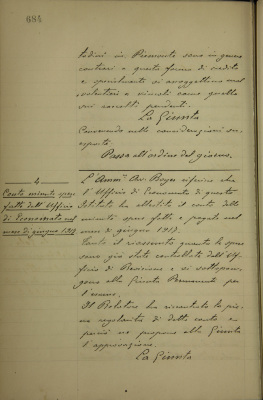 684
tadini in Piemonte sono in genere
contrari a questa forma di vendita
e specialmente si assoggettano mal
volentieri a vincoli come quello
sui cancelli pendenti.
La Giunta
Convenendo nelle considerazioni su-
esposte
Passa all'ordine del giorno.
4
Conto minute spese
fatte dall'Ufficio
di Economato nel
mese di giugno 1917
L'Ammre Av. Boyer riferisce che
l'Ufficio di Economato di questo
Istituto ha allestito il conto delle
minute spese fatte e pagate nel
mese di giugno 1917.
Tanto il riassunto quanto le spese
sono già state controllate dall'Uf-
ficio di Revisione e si sottopon-
gono alla Giunta Permanente per
l'esame.
Il Relatore ha riscontrato la pie-
na regolarità di detto conto e
perciò ne propone alla Giunta
l'approvazione.
La Giunta